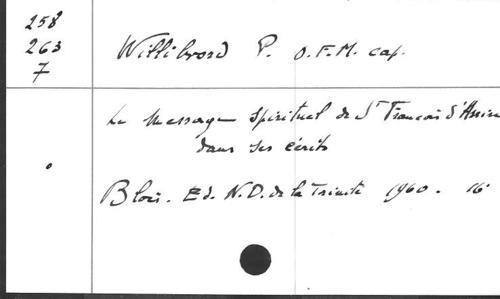 258
263
7
Willibrord P. O.F.M. cap.
Le Message Spirituel de St François d'Assise
dans ses écrits
Blois. Ed. N.D. de la Trinité 1960. 16°